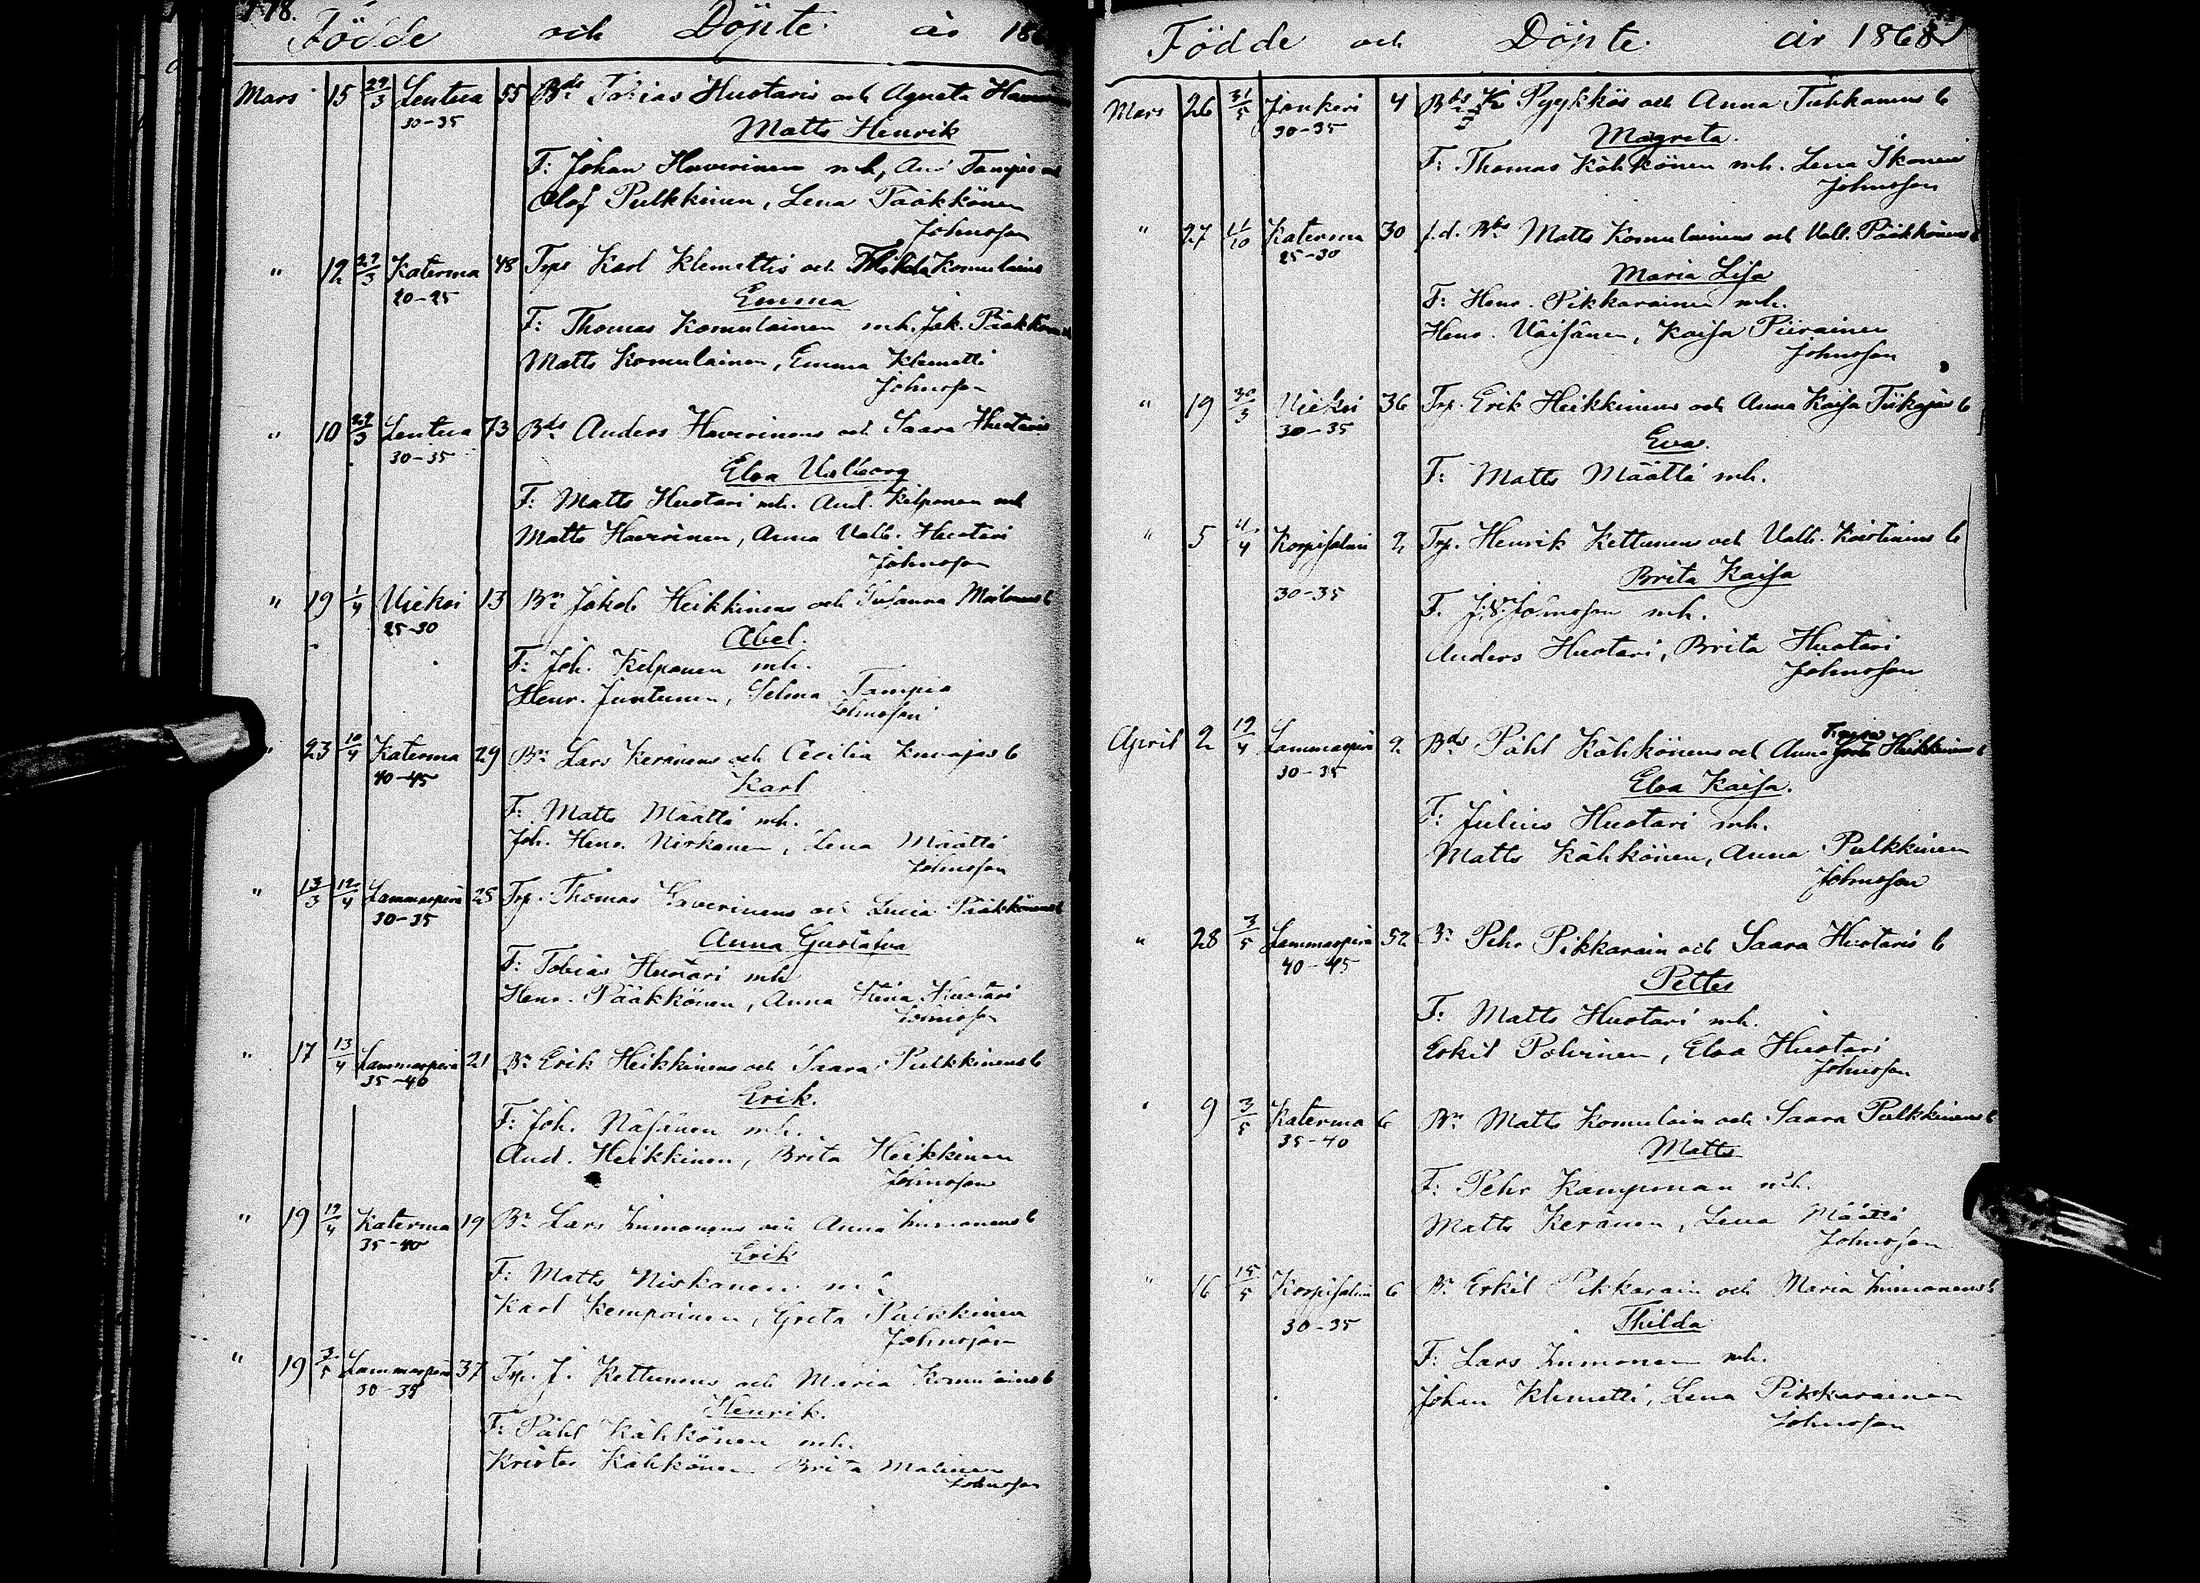 178.
Födde och Döpte år 186
Mars 15 29/3 Lentua 55 Bds Tobias Huotaris och Agneta
30-35
Matts Henrik
F: Johan Haverinen mh, And Tampio mh
Olof Pulkkinen, Lena Pääkkönen
Johnsson
" 12 29/3 Katerma 48 Trps Karl Klemettis och Thilda Komulains
20-25
Emma
F: Thomas Komulainen mh. Jak. Pääkkönen
Matts Komulainen, Emma Klemetti
Johnsson
" 10 29/3 Lentua 73 Bds Anders Haverinens och Saara Huotaris
30-35
Elsa Valborg
F: Matts Huotari mh. And. Kilponen mh
Matts Haverinen, Anna Valb. Huotari
Johnsson
" 19 1/4 Vieksi 13 Bn Jakob Heikkinens och Susanna b
25-30
Abel.
F: Joh. Kilponen mh.
Henr. Juntunen, Selma Tampio
Johnsson
" 23 10/4 Katerma 29 Bn Lars Keränens och Cecilia b
40-45
Karl
F: Matts Määttä mh.
Joh. Henr. Niskanen, Lena Määttä
Johnsson
" 13/3 12/4 Lammasperä 25 Trp. Thomas Haverinens och Lucia Pääkkönens b
30-35
Anna Gustafva
F: Tobias Huotari mh
Henr. Pääkkönen, Anna Stina Huotari
Johnsson
" 17 13/4 Lammasperä 21 Bn Erik Heikkinens och Saara Pulkkinens b
35-40
Erik.
F: Joh. Näsänen mh.
And. Heikkinen, Brita Heikkinen
Johnsson
" 19 19/4 Katerma 19 Bn Lars Immonens och Anna Immonens b
35-40
Erik
F: Matts Niskanen mh
Karl Kempainen, Greta Pulkkinen
Johnsson
" 19 3/5 Lammasperä 37 Trp. J. Kettunens och Maria Komulains b
30-35
Henrik.
F: Påhl Kähkönen mh.
Krister Kähkönen Brita Malinen
Johnsson
Födde och Döpte år 1868
Mars 26 31/5 Jonkeri 4 Bds Pyykkös och Anna Tuhkanens b
30-35
Magreta.
F: Thomas Kähkönen mh. Lena Ikonen
Johnsson
" 27 11/10 Katerma 30 f.d. Bds Matts Komulainens och Valb. Pääkkönens b
25-30
Maria Lisa
F: Henr. Pikkarainen mh.
Henr. Väisänen, Kaisa Piirainen
Johnsson
" 19 30/3 Vieksi 36 Trp. Erik Heikkinens och Anna Kaisa Tiikajas b
30-35
Eva.
F: Matts Määttä mh.
" 5 4/4 Korpisalmi 2 Trp. Henrik Kettunens och Valb. Koistinens b
30-35
Brita Kaisa
F. J.V. Johnsson mh.
Anders Huotari, Brita Huotari
Johnsson
April 2 12/4 Lammasperä 2 Bds Påhl Kähkönens och Anna Kaisa Heikkinens b
30-35
Elsa Kaisa.
F: Julius Huotari mh.
Matts Kähkönen, Anna Pulkkinen
Johnsson
" 28 3/5 Lammasperä 52 Bn Pehr Pikkarain och Saara Huotaris b
40-45
Petter
F: Matts Huotari mh.
Eskil Polvinen, Elsa Huotari
Johnsson
" 9 3/5 Katerma 6 Bn Matts Komulain och Saara Pulkkinens b
35-40
Matts
F: Pehr Kampman mh.
Matts Keränen, Lena Määttä
Johnsson
" 16 15/5 Korpisalmi 6 Bn Eskil Pikkarain och Maria Immonens b
30-35
Thilda
F: Lars Immonen mh.
Johan Klemetti, Lena Pikkarainen
Johnsson